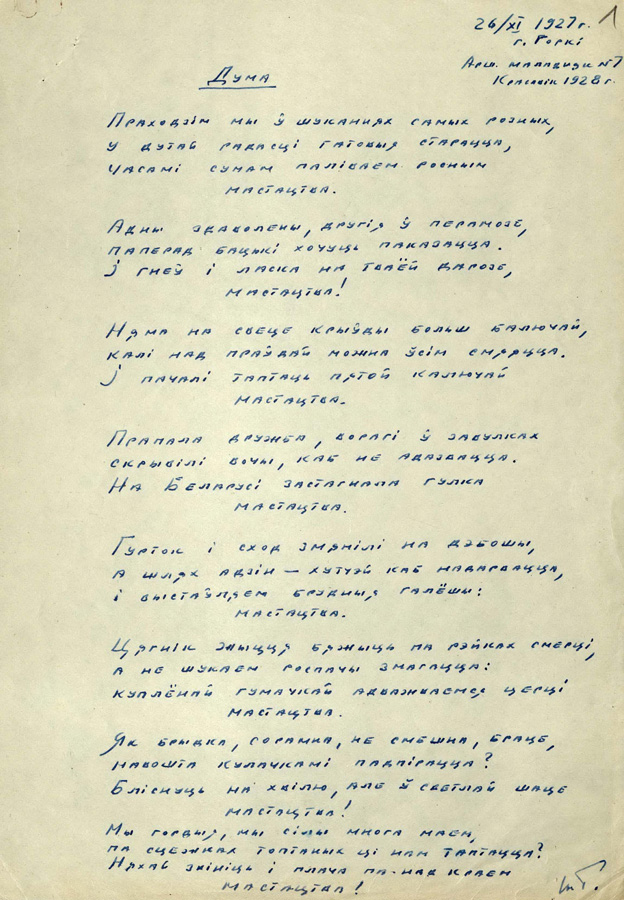 1
26/XI 1927 г.
г. Горкі
Арш. маладняк № 7
Красавік 1928 г.
Дума
Праходзім мы ў шуканнях самых розных,
у дутай радасці гатовыя старацца,
часамі сумам паліваем росным
мастацтва.
Адны здаволены, другія ў перамозе,
паперад бацькі хочуць паказацца.
І гнеў і ласка на тваёй дарозе,
мастацтва!
Няма на свеце крыўды больш балючай,
калі над праўдай можна ўсім смяяцца.
І пачалі таптаць пятой калючай
мастацтва.
Прапала дружба, ворагі ў завулках
скрывілі вочы, каб не адазвацца.
На Беларусі застагнала гулка
мастацтва.
Гурток і сход змянілі на дэбошы,
а шлях адзін — хутчэй каб надарвацца,
і выстаўляем брудныя галёшы:
мастацтва.
Цягнік жыцця бяжыць па рэйках смерці,
а не шукаем роспачы змагацца:
куплёнай гумачкай адважваемся церці
мастацтва.
Як брыдка, сорамна, не смешна, браце,
навошта кулачкамі падпірацца?
Бліснуць на хвілю, але ў светлай шаце
мастацтва!
Мы гордыя, мы сілы многа маем,
па сцежках топтаных ці нам таптацца?
Няхай звініць і плача па-над краем
мастацтва!